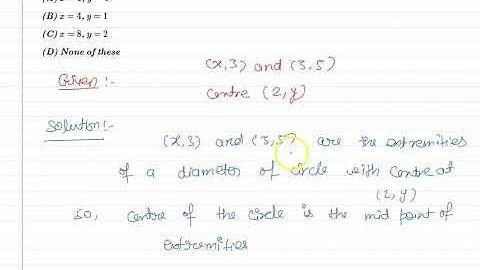 (B) x = 4, y = 1
(C) x = 8, y = 2
(D) None of these
Given :-
(x,3) and (3,5)
centre (2,y)
Solution :-
(x,3) and (3,5) are the extremities
of a diameter of circle with centre at
(2,y)
so, centre of the circle is the mid point of
extremities